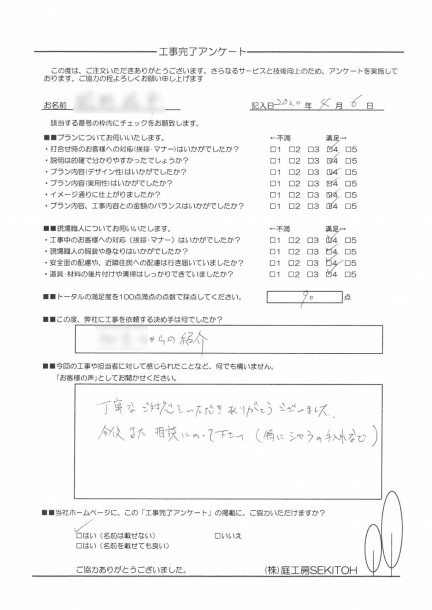 工事完了アンケート
この度は、ご注文いただきありがとうございます。さらなるサービスと技術向上のため、アンケートを実施して
おります。ご協力の程よろしくお願い申し上げます
お名前 記入日 2020 年 4 月 6 日
該当する番号の枠内にチェックをお願致します。
■■プランについてお伺いいたします。 ←不満 満足→
・打合せ時のお客様への対応(挨拶・マナー)はいかがでしたか? □1 □2 □3 □4 □5
・説明は的確で分かりやすかったでしょうか? □1 □2 □3 □4 □5
・プラン内容(デザイン性)はいかがでしたか? □1 □2 □3 □4 □5
・プラン内容(実用性)はいかがでしたか? □1 □2 □3 □4 □5
・イメージ通りに仕上がりましたか? □1 □2 □3 □4 □5
・プラン内容、工事内容との金額のバランスはいかがでしたか? □1 □2 □3 □4 □5
■■現場職人についてお伺いいたします。 ←不満 満足→
・工事中のお客様への対応(挨拶・マナー)はいかがでしたか? □1 □2 □3 □4 □5
・現場職人の服装や身なりはいかがでしたか? □1 □2 □3 □4 □5
・安全面の配慮や、近隣住民への配慮は行き届いていましたか? □1 □2 □3 □4 □5
・道具・材料の後片付けや清掃はしっかりできていましたか? □1 □2 □3 □4 □5
■■トータルの満足度を100点満点の点数で採点してください。 90 点
■■この度、弊社に工事を依頼する決め手は何でしたか?
からの紹介
■■今回の工事や担当者に対して感じられたことなど、何でも構いません。
「お客様の声」としてお聞かせください。
丁寧なご対応をいただきありがとうございました。
今後また相談にのって下さい(特にシャラの手入れなど)
■■当社ホームページに、この「工事完了アンケート」の掲載に、ご協力いただけますか?
□はい(名前は載せない) □いいえ
□はい(名前を載せても良い)
ご協力ありがとうございました。 (株)庭工房SEKITOH